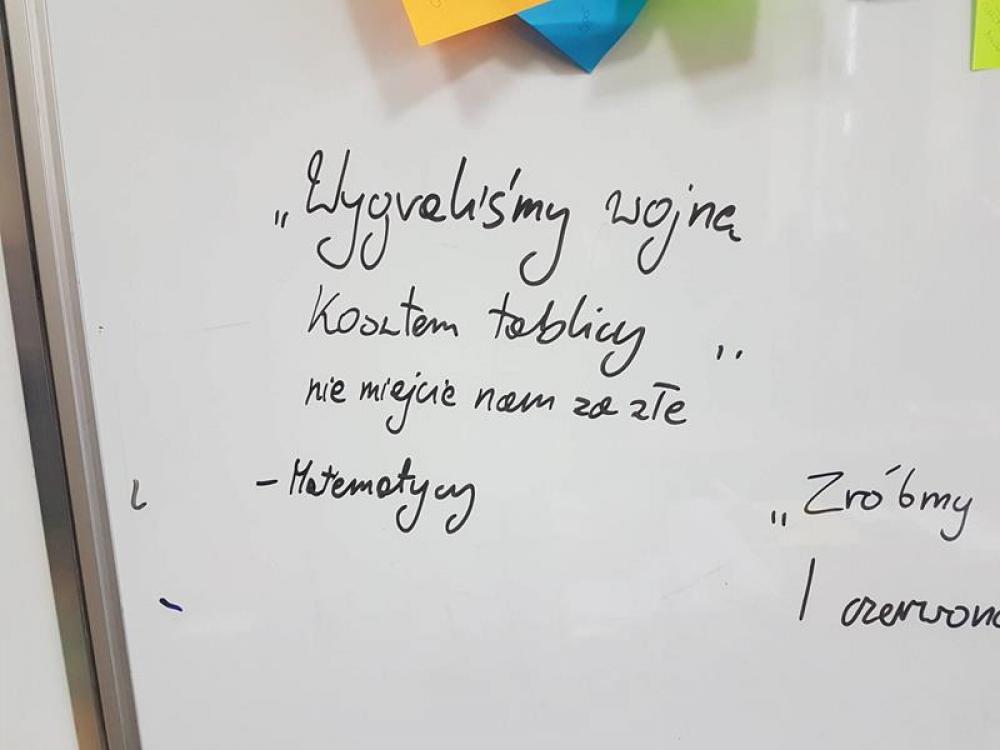 „Wygraliśmy wojnę
Kosztem tablicy ''
nie miejcie nam za złe
- Matematycy
„Zróbmy
1 czerwono